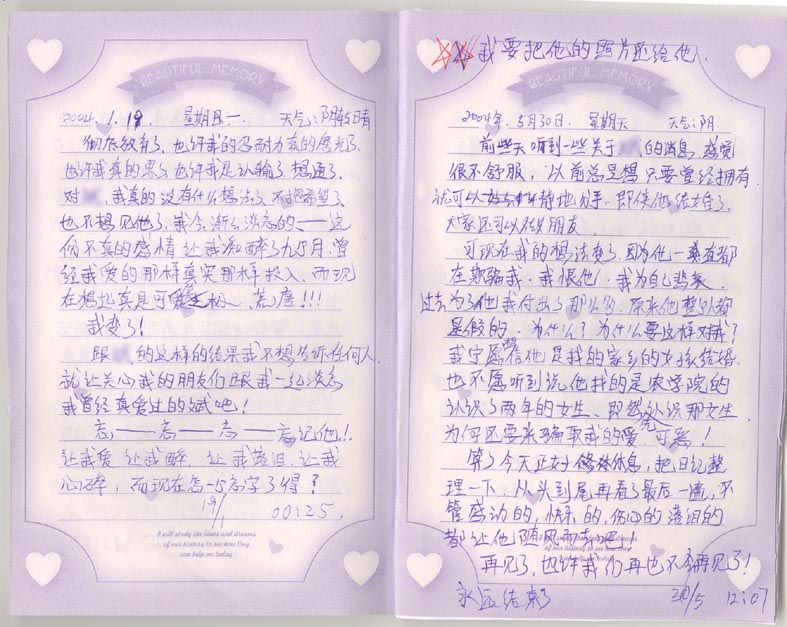 BEAUTIFUL MEMORY
2004.1.19 星期一 天气:阴转晴
彻底放弃了,也许我的忍耐力真的磨光了
也许我真的累了,也许我是认输了,想通了
对 ,我真的没有什么想法了,不抱希望了
也不想见他了,我会渐渐淡忘的——这
份不真的感情让我和醉了九个月,曾
经我爱的那样真实那样投入,而现
在想起真是可笑至极、荒唐!!!
我变了!
跟 的这样的结果我不想告诉任何人
就让关心我的朋友们跟我一起淡忘
我曾经真爱过的 吧!
忘——忘——忘——忘记他!!
让我爱,让我醉,让我落泪,让我
心碎,而现在怎一与忘字了得?
19/1 00:25.
I will study the ideas and dreams
of our history to see how they
can help me today.
我要把他的照片还给他
BEAUTIFUL MEMORY
2004年5月30日. 星期天 天气:阴.
前些天听到一些关于 的消息,感觉
很不舒服,以前总是想只要曾经拥有
就可以 静地分手.即使他结婚了
大家还可以做朋友.
可现在我的想法变了.因为他一直都
在欺骗我.我恨他.我为自己悲哀.
过去为了他我付出了那么多,原来他 都
是假的.为什么?为什么要这样对我?
我宁愿信他是找的家乡的女孩结婚.
也不愿听到说他找的是农学院的
认识了两年的女生、即然先认识那女生
为何还要来骗取我的爱,可恶!
算了今天正好休息,把日记整
理一下.从头到尾再看了最后一遍,不
管感动的,快乐的,伤心的落泪的
都让他随风而去吧.
再见了,也许我们再也不会再见了!
永远结束了 30/5 12:07